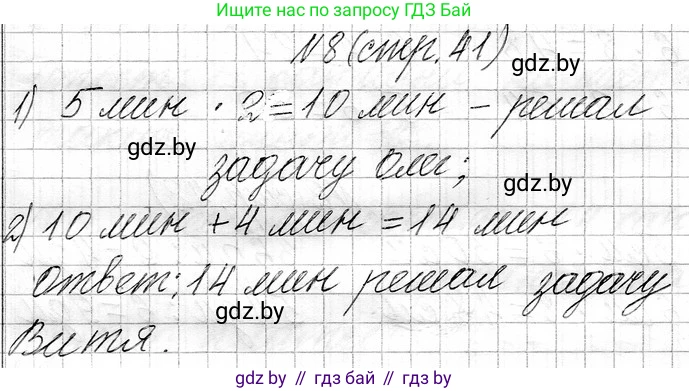 Ищите нас по запросу ГДЗ Бай
№8 (стр. 41)
gdz.by
1) 5 мин · 2 = 10 мин – решал
gdz.by
задачу Олег;
gdz.by
2) 10 мин + 4 мин = 14 мин
ответ: 14 мин решал задачу
gdz.by
Витя.
gdz.by // гдз бай // гдз by